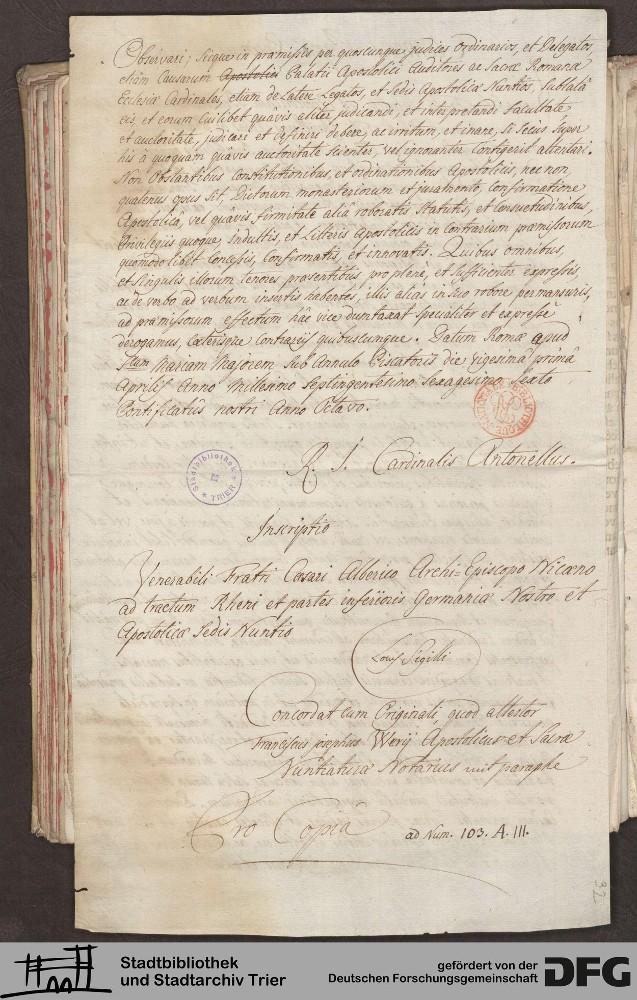 Observari; sicque in præmissis per quoscunque judices ordinarios, et Delegatos,
etiam Causarum Apostolici Palatii Apostolici Auditores ac Sacræ Romanæ
Ecclesiæ Cardinales, etiam de Latere Legatos, et Sedis Apostolicæ Nuntios, sublatâ
eis, et eorum cuilibet quâvis aliter judicandi, et interpretandi facultate
et auctoritate, judicari et definiri debere, ac irritum, et inane, si secus super
his à quoquam quâvis auctoritate scienter vel ignoranter contigerit attentari.
Non Obstantibus constitutionibus, et ordinationibus Apostolicis, nec non,
quatenus opus sit, Dictorum monasteriorum et juramento, confirmatione
Apostolicâ, vel quavis firmitate aliâ roboratis statutis, et Consuetudinibus,
Privilegiis quoque, Indultis, et Litteris Apostolicis in contrarium præmissorum
quomodolibet concessis, confirmatis, et innovatis. Quibus omnibus,
et singulis illorum tenores præsentibus pro plenè, et sufficienter expressis,
ac de verbo ad verbum insertis habentes, illis aliàs in suo robore permansuris,
ad præmissorum effectum hâc vice duntaxat specialiter et expressè
derogamus, Cæterisque contrariis quibuscunque. Datum Romæ apud
Stam Mariam Majorem sub Annulo Piscatoris die vigesimâ primâ
Aprilis Anno millesimo septingentesimo sexagesimo sexto
Pontificatûs nostri Anno Octavo.
Cardinalis Antonellus.
Stadtbibliothek
TRIER
Inscriptio
Venerabili Fratri Cæsari Alberico Archi=Episcopo Nicæno
ad tractum Rheni et partes inferioris Germaniæ Nostro et
Apostolicæ Sedis Nuntio
Locus Sigilli
Concordat cum Originali, quod attestor
Franciscus josephus Apostolicus et Sacræ
Nuntiaturæ Notarius mit paraphe
Pro Copiâ
ad Num. 103. A. III.
32
Stadtbibliothek
und Stadtarchiv Trier
gefördert von der
Deutschen Forschungsgemeinschaft
DFG